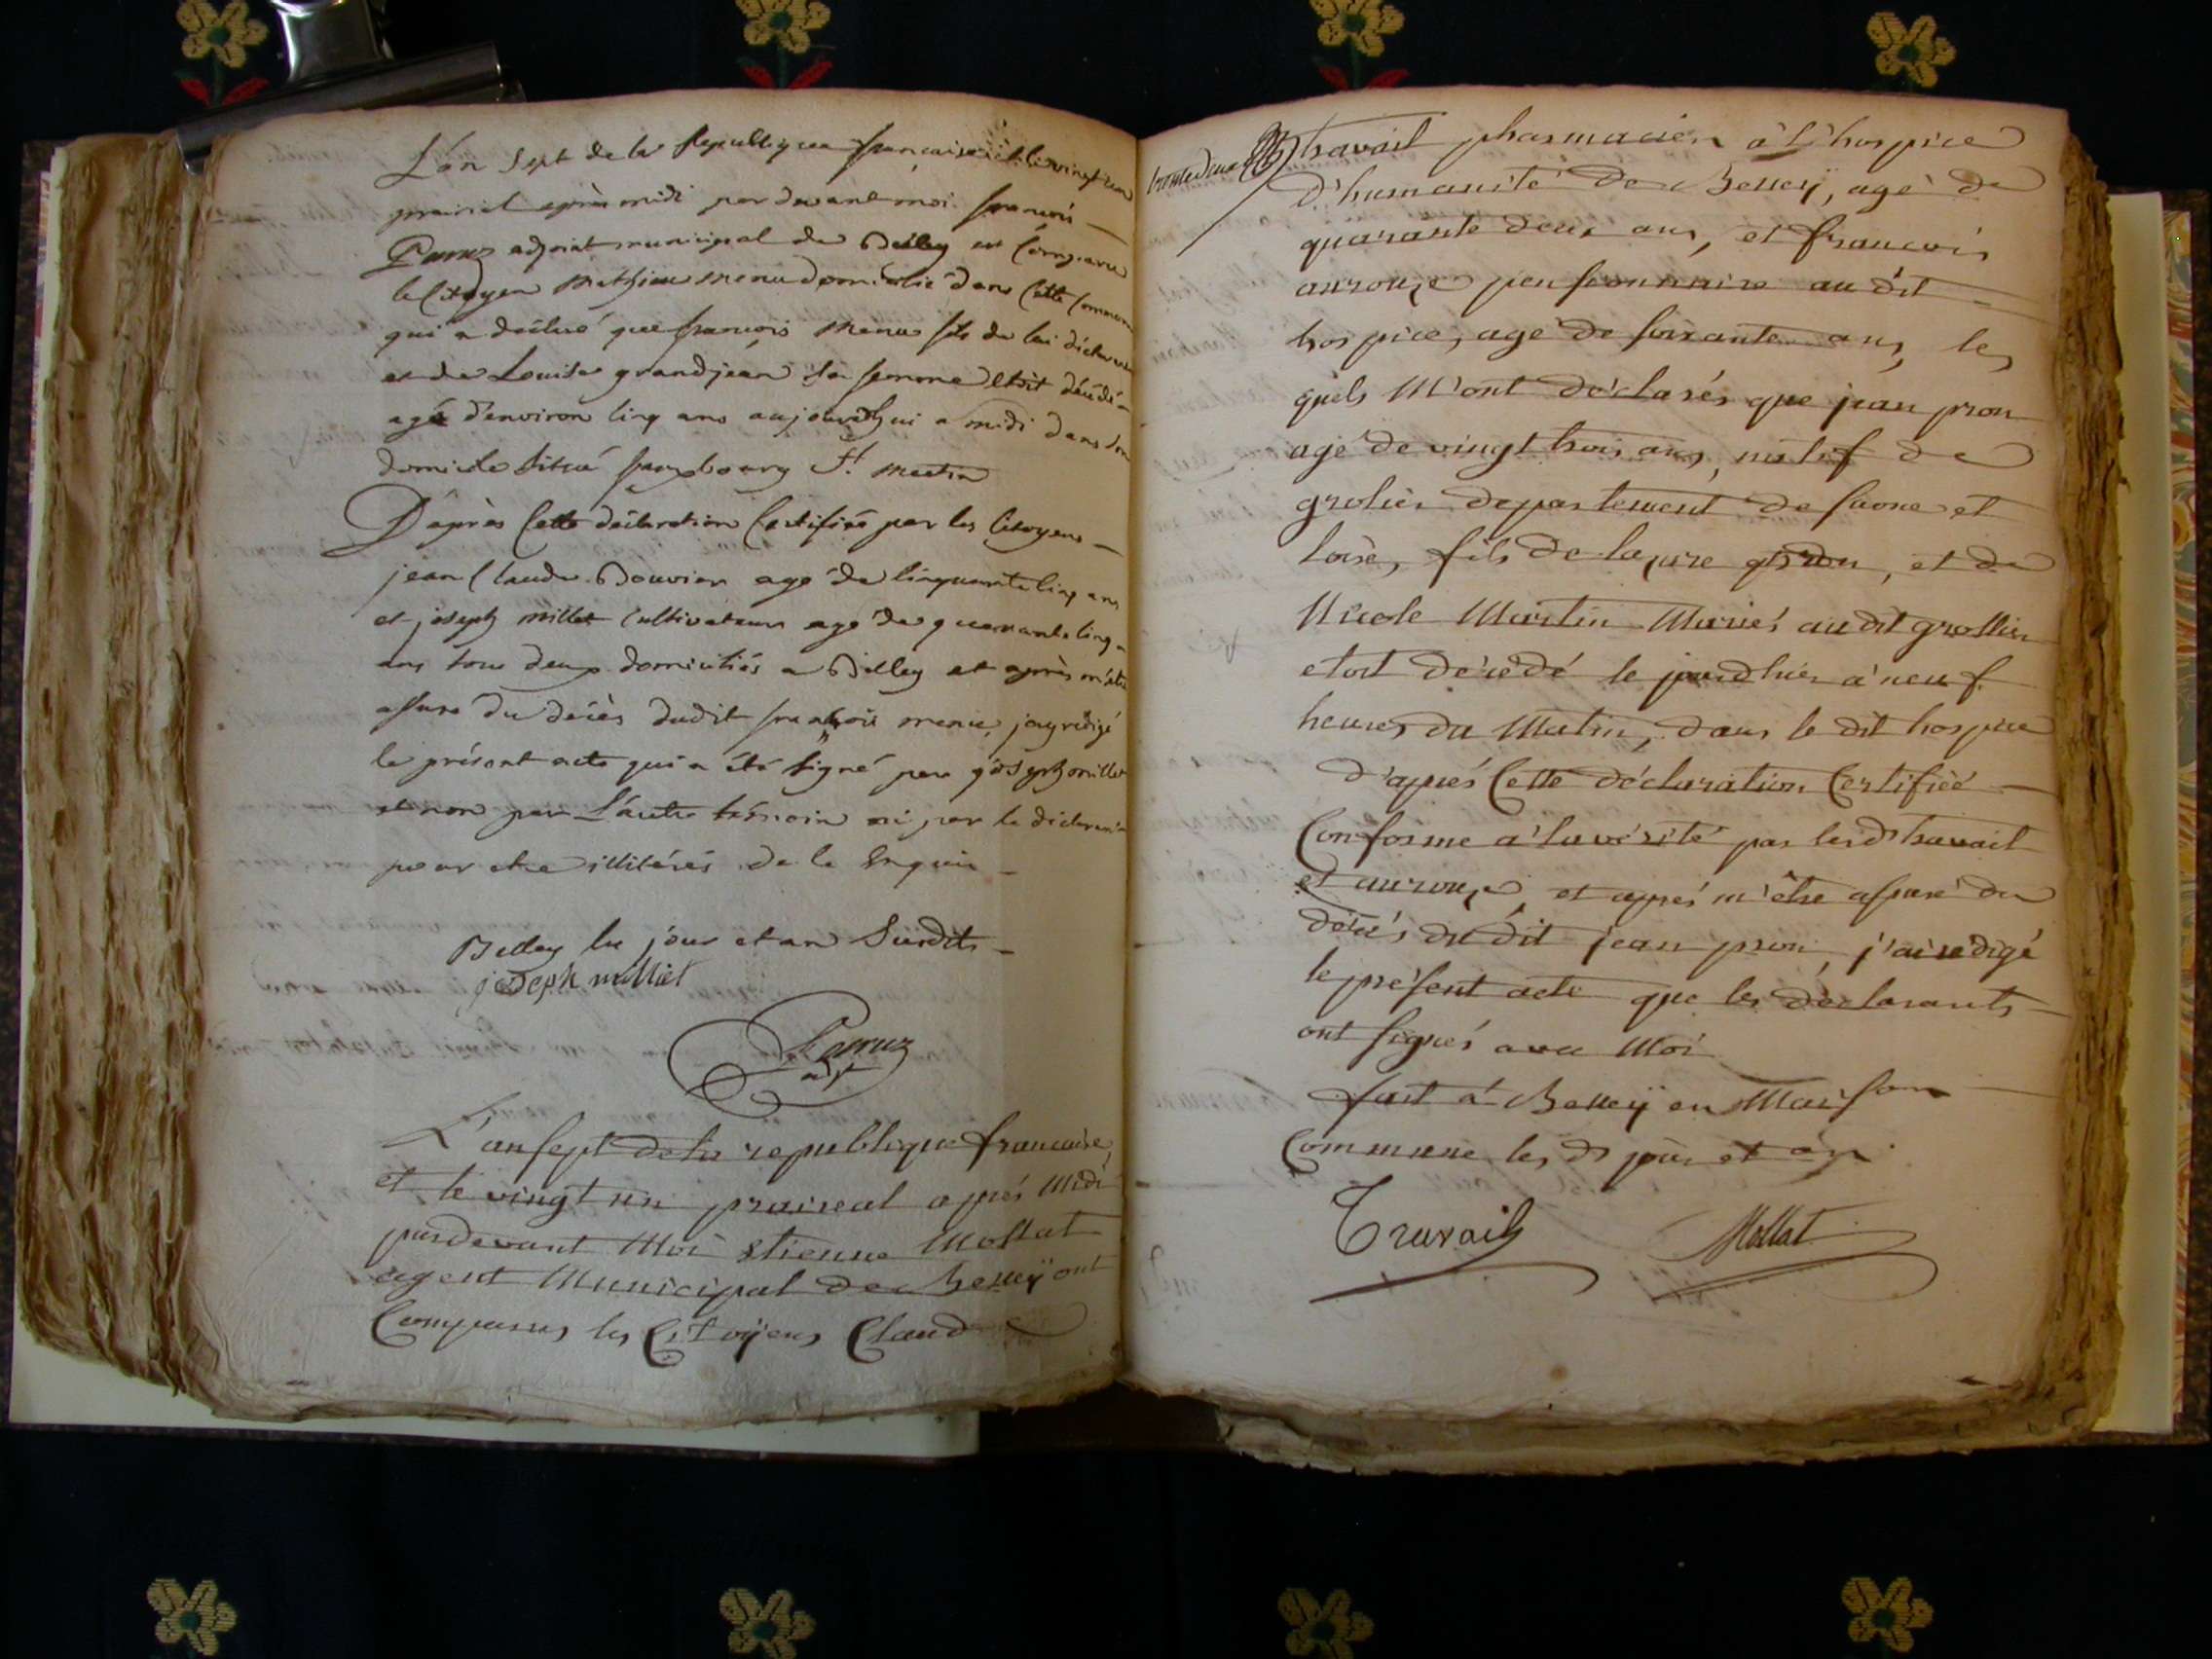 L'an Sept de la Republique française et le vingt un
prairial après midi par devant moi françois
Parraz adjoint municipal de Belley est Comparu
le Citoyen Mathieu menu domicilié dans Cette Commune
qui a déclaré que françois menu fils de lui déclarant
et de Louise grandjean sa femme etoit décédé
agé d'environ Cinq ans aujourdhui a midi dans son
domicile Situé fauxbourg St. martin
D'après Cette déclaration Certifiée par les Citoyens
jean Claude Bouvier agé de Cinquante Cinq ans
et joseph millet Cultivateurs agé de quarante Cinq
ans tous deux domiciliés a Belley et après m'être
assuré du décès dudit françois menu, j'ay rédigé
le présent acte qui a été signé par joseph millet
et non par L'autre témoin ni par le déclarant
pour etre illitérés de le Enquis
Belley les jour et an Susdits
joseph milliet
Parraz
adjt
L'an sept de la republique francaise,
et le vingt un praireal aprés Midi
pardevant Moi etienne Mollat
agent Municipal de Belleÿ ont
Comparus les Citoÿens Claude
trente deux
travail pharmacien à l'hospice
d'humanité de Belleÿ, agé de
quarante deux ans, et francois
aurouze pensionnaire au dit
hospice, agé de soixante ans, les
quels M'ont déclarés que jean pron
agé de vingt trois ans, natif de
grolier departement de saone et
loire, fils de lazare pron, et de
Nicole Martin Mariés audit grollier
etoit décédé le jourdhier à neuf
heures du Matin, dans le dit hospice
d'aprés Cette déclaration Certifiée
Conforme a la vérité par lesd travail
et aurouze, et aprés m'être assuré du
décés du dit jean pron, j'ai redigé
le présent acte que les déclarants
ont signés avec Moi
fait á Belleÿ en Maison
Commune les d jour et an
Travail Mollat